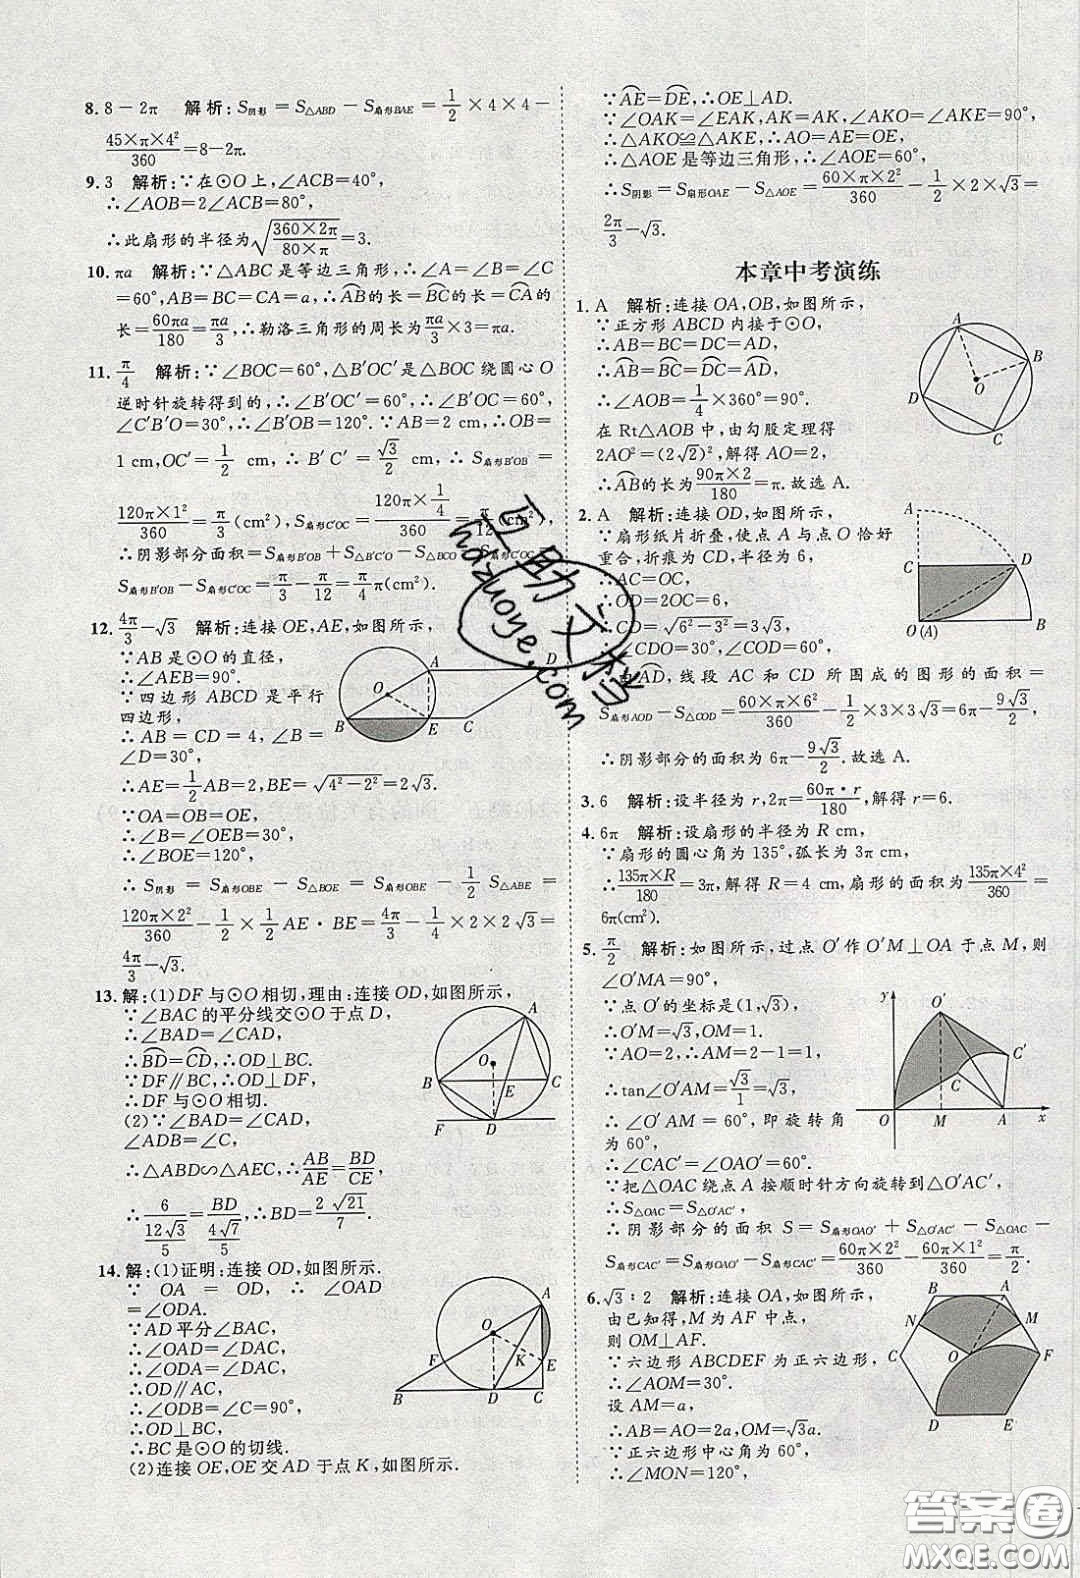 8. 8－2π　解析:S阴影＝S△ABD－S扇形BAE＝1/2×4×4－
45×π×4²/360＝8－2π.
9. 3　解析:∵在⊙O上,∠ACB＝40°,
∴∠AOB＝2∠ACB＝80°,
∴此扇形的半径为√(360×2π/80×π)＝3.
10. πa　解析:∵△ABC是等边三角形,∴∠A＝∠B＝∠C
＝60°,AB＝BC＝CA＝a,∴AB⌒的长＝BC⌒的长＝CA⌒的
长＝60πa/180＝πa/3,∴勒洛三角形的周长为πa/3×3＝πa.
11. π/4　解析:∵∠BOC＝60°,△B′OC′是△BOC绕圆心O
逆时针旋转得到的,∴∠B′OC′＝60°,∴∠B′OC＝60°,
∠C′B′O＝30°,∴∠B′OB＝120°.∵AB＝2 cm,∴OB＝
1 cm,OC′＝1/2 cm,∴B′C′＝√3/2 cm,∴S扇形B′OB＝
120π×1²/360＝π/3(cm²),S扇形C′OC＝120π×1/4/360＝π/12(cm²),
∴阴影部分面积＝S扇形B′OB＋S△B′C′O－S△BCO－S扇形C′OC＝
S扇形B′OB－S扇形C′OC＝π/3－π/12＝π/4π(cm²).
12. 4π/3－√3　解析:连接OE,AE,如图所示,
∵AB是⊙O的直径,
∴∠AEB＝90°.
∵四边形ABCD是平行
四边形,
∴AB＝CD＝4,∠B＝
∠D＝30°,
∴AE＝1/2AB＝2,BE＝√(4²－2²)＝2√3.
∵OA＝OB＝OE,
∴∠B＝∠OEB＝30°,
∴∠BOE＝120°,
∴S阴影＝S扇形OBE－S△BOE＝S扇形OBE－1/2S△ABE＝
120π×2²/360－1/2×1/2AE·BE＝4π/3－1/4×2×2√3＝
4π/3－√3.
13. 解:(1)DF与⊙O相切,理由:连接OD,如图所示,
∵∠BAC的平分线交⊙O于点D,
∴∠BAD＝∠CAD,
∴BD⌒＝CD⌒,∴OD⊥BC.
∵DF∥BC,∴OD⊥DF,
∴DF与⊙O相切.
(2)∵∠BAD＝∠CAD,
∠ADB＝∠C,
∴△ABD∽△AEC,∴AB/AE＝BD/CE,
∴6/(12√3/5)＝BD/(4√7/5),∴BD＝2√21/7.
14. 解:(1)证明:连接OD,如图所示.
∵OA＝OD,∴∠OAD
＝∠ODA.
∵AD平分∠BAC,
∴∠OAD＝∠DAC,
∴∠ODA＝∠DAC,
∴OD∥AC,
∴∠ODB＝∠C＝90°,
∴OD⊥BC,
∴BC是⊙O的切线.
(2)连接OE,OE交AD于点K,如图所示.
∵AE⌒＝DE⌒,∴OE⊥AD.
∵∠OAK＝∠EAK,AK＝AK,∠AKO＝∠AKE＝90°,
∴△AKO≌△AKE,∴AO＝AE＝OE,
∴△AOE是等边三角形,∴∠AOE＝60°,
∴S阴影＝S扇形OAE－S△AOE＝60×π×2²/360－1/2×2×√3＝
2π/3－√3.
本章中考演练
1. A　解析:连接OA,OB,如图所示,
∵正方形ABCD内接于⊙O,
∴AB＝BC＝DC＝AD,
∴AB⌒＝BC⌒＝DC⌒＝AD⌒,
∴∠AOB＝1/4×360°＝90°.
在Rt△AOB中,由勾股定理得
2AO²＝(2√2)²,解得AO＝2,
∴AB⌒的长为90π×2/180＝π,故选A.
2. A　解析:连接OD,如图所示,
∵扇形纸片折叠,使点A与点O恰好
重合,折痕为CD,半径为6,
∴AC＝OC,
∴OD＝2OC＝6,
∴CD＝√(6²－3²)＝3√3,
∴∠CDO＝30°,∠COD＝60°,
∴由AD⌒,线段AC和CD所围成的图形的面积＝
S扇形AOD－S△COD＝60×π×6²/360－1/2×3×3√3＝6π－9√3/2,
∴阴影部分的面积为6π－9√3/2.故选A.
3. 6　解析:设半径为r,2π＝60π·r/180,解得r＝6.
4. 6π　解析:设扇形的半径为R cm,
∵扇形的圆心角为135°,弧长为3π cm,
∴135π×R/180＝3π,解得R＝4 cm,扇形的面积为135π×4²/360＝
6π(cm²).
5. π/2　解析:如图所示,过点O′作O′M⊥OA于点M,则
∠O′MA＝90°,
∵点O′的坐标是(1,√3),
∴O′M＝√3,OM＝1.
∵AO＝2,∴AM＝2－1＝1,
∴tan∠O′AM＝√3/1＝√3,
∴∠O′AM＝60°,即旋转角
为60°,
∴∠CAC′＝∠OAO′＝60°.
∵把△OAC绕点A按顺时针方向旋转到△O′AC′,
∴S△OAC＝S△O′AC′,
∴阴影部分的面积S＝S扇形OAO′＋S△O′AC′－S△OAC－
S扇形CAC′＝S扇形OAO′－S扇形CAC′＝60π×2²/360－60π×1²/360＝π/2.
6. √3∶2　解析:连接OA,如图所示,
由已知得,M为AF中点,
则OM⊥AF.
∵六边形ABCDEF为正六边形,
∴∠AOM＝30°.
设AM＝a,
∴AB＝AO＝2a,OM＝√3a.
∵正六边形中心角为60°,
∴∠MON＝120°,
互助文档
hazuoye.com
答案圈
MXQE.COM